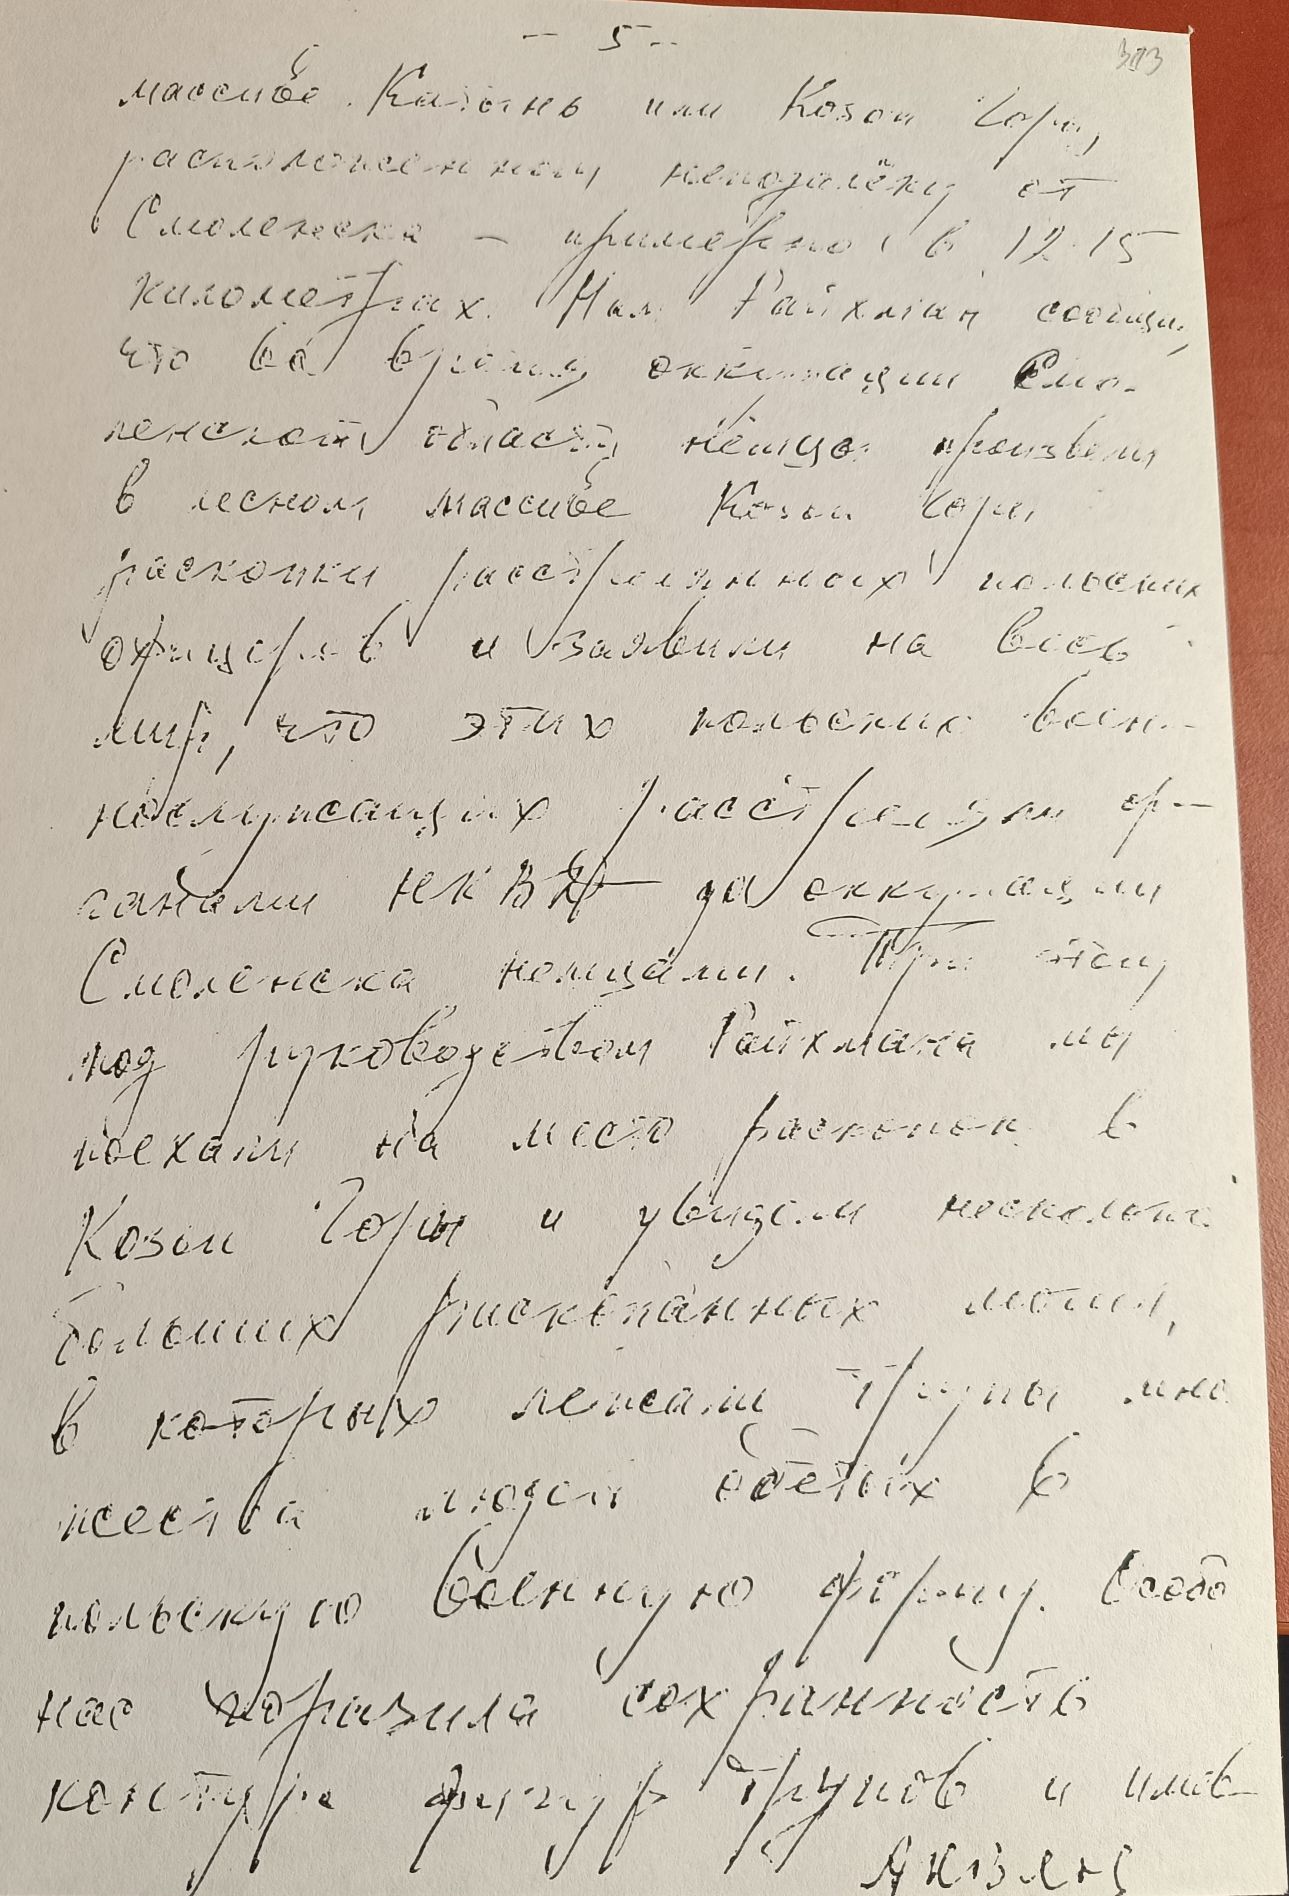 - 5 -
массиве Катынь или Козьи Горы,
расположенному неподалёку от
Смоленска - примерно в 12-15
километрах. Нам Райхман сообщил,
что во время оккупации Смо-
ленской области немцы произвели
в лесном массиве Козьи Горы
раскопки расстрелянных польских
офицеров и заявили на весь
мир, что этих польских воен-
нослужащих расстреляли ор-
ганами НКВД до оккупации
Смоленска немцами. При этом
под руководством Райхмана мы
поехали на место раскопок в
Козьи Горы и увидели несколько
больших раскопанных могил,
в которых лежали трупы мно
жества людей одетых в
польскую военную форму. Особо
нас поразила сохранность
контура фигур трупов и имев-